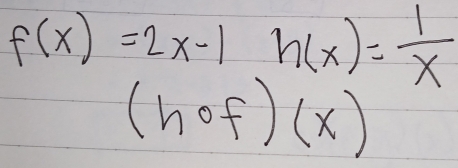 f(x) = 2x-1 h(x) = 1/x
(h∘f)(x)